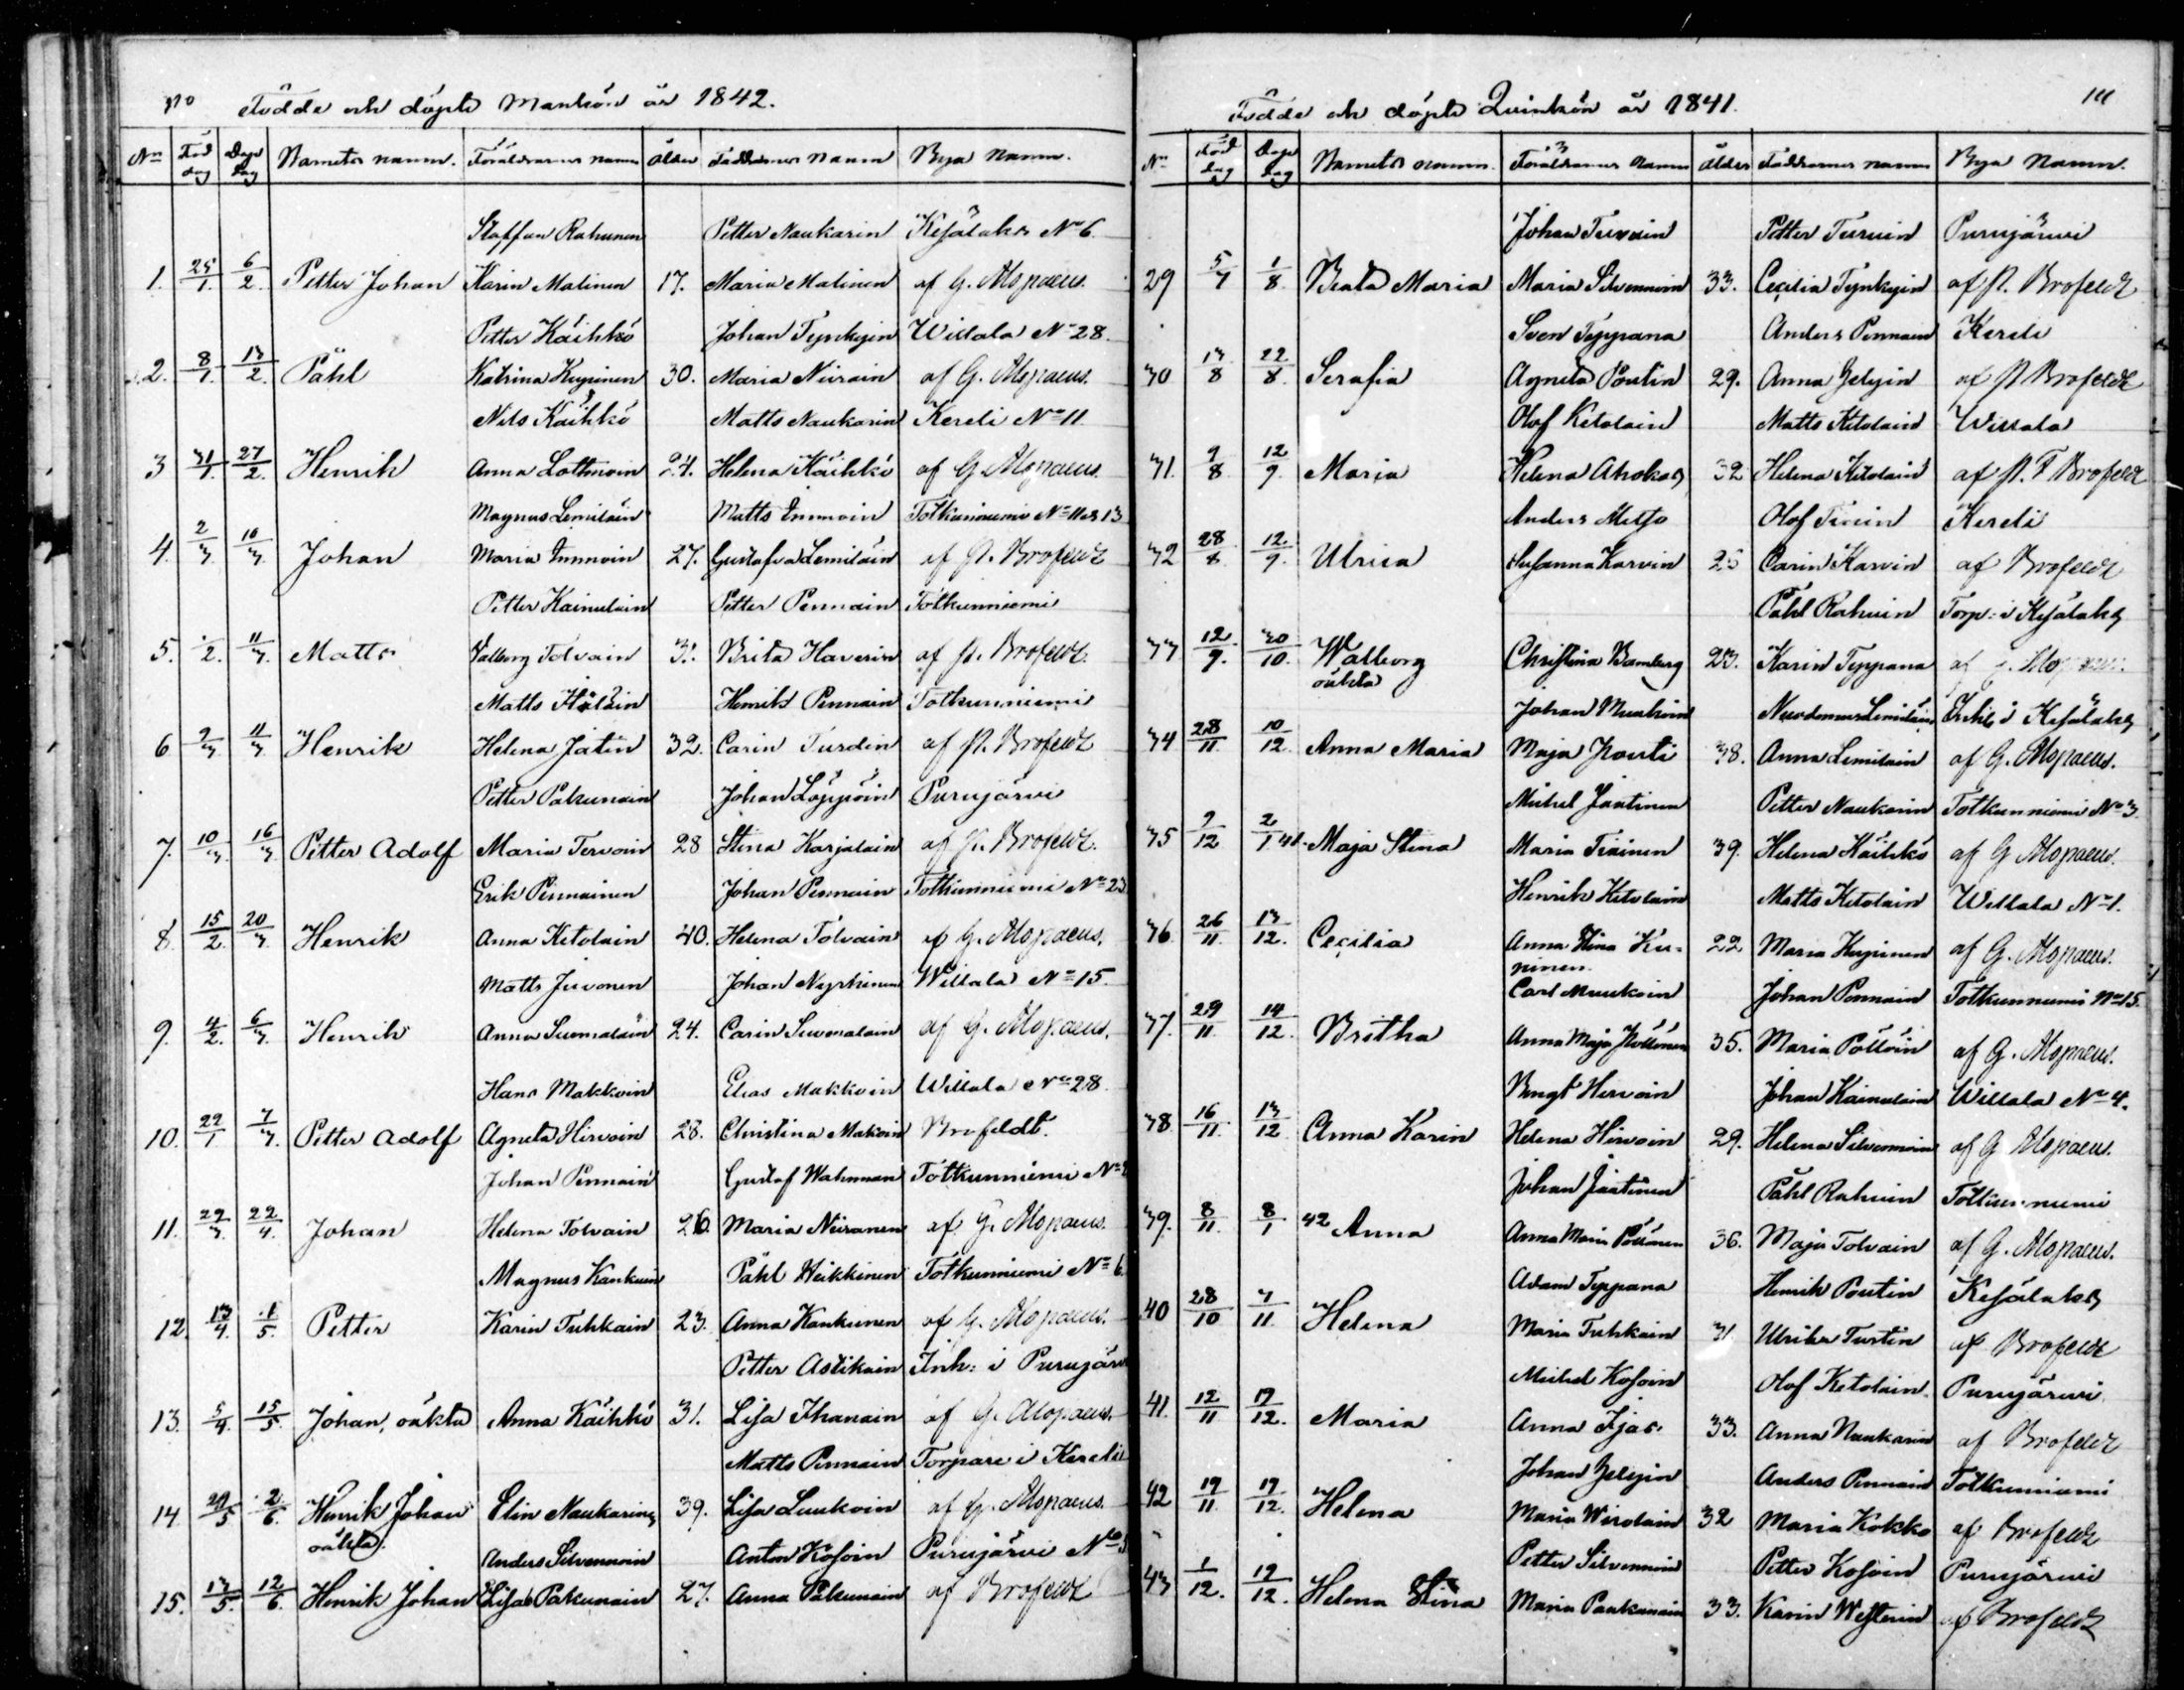 110 Födde och döpte Mankön år 1842.
No Född dag Döpe dag Barnets namn. Föräldrarnes namn Ålder Faddrarnes namn Bya Namn.
Staffan Rahunen Petter Naukarin Kesälaks No 6
1. 25/1. 6/2. Petter Johan Karin Malinen 17. Maria Malinen af G. Alopaeus.
Petter Käihkö Johan Tynkyin Willala No 28.
2. 8/1. 13/2. Påhl Katrina Kupinen 30. Maria Niirain af G. Alopaeus.
Nils Käihkö Matts Naukarin Kereli No 11
3 31/1. 27/2. Henrik Anna Lottinoin 24. Helena Käihkö af G. Alopaeus.
Magnus Lemiläin Matts Immoin Totkunniemi No 11 & 13
4. 2/3. 10/3. Johan Maria Immoin 27. Gustafva Lemiläin af P. Brofeldt
Petter Kainulain Petter Pennain Totkunniemi
5. /2. 11/3. Matts Valborg Tolvain 3. Brita Haverin af P. Brofeldt.
Matts Henrik Pennain Totkunniemi
6 9/3. 11/3 Henrik Helena Jätin 32. Carin Turdin af P. Brofeldt
Petter Pakunain Johan Löppöin Purujärvi
7. 10/3. 16/3. Petter Adolf Maria Tervoin 28 Stina Karjalain af P. Brofeldt.
Erik Pennainen Johan Pennain Totkunniemi No 23
8. 15/2. 20/3. Henrik Anna Ketolain 40. Helena Tolvain af G. Alopaeus.
Matts Juvonen Johan Nyrhinen Willala No 15.
9. 4/2. 6/3. Henrik Anna Suomalain 24. Carin Suomalain af G. Alopaeus.
Hans Makkoin Elias Makkoin Willala No 28
10. 22/1 7/3. Petter Adolf Agneta Hirvoin 28. Christina Makoin Brofeldt.
Johan Pennain Gustaf Wahnman Totkunniemi No
11. 29/3. 22/4. Johan Helena Tolvain 26. Maria Niiranen af G. Alopaeus.
Magnus Kankuin Påhl Heikkinen Totkunniemi No 6
12. 13/4. 1/5. Petter Karin Tuhkain 23. Anna Kankunen af G. Alopaeus.
Petter Astikain Inh: i Purujärvi
13. 5/4. 15/5. Johan, oäkta Anna Käihkö 31. Lisa Ihanain af G. Alopaeus.
Matts Pennain Torpare i Kereli
14. 29/5 2/6. Henrik Johan Elin Naukarin 39. Lisa Luukoin af G. Alopaeus.
oäkta. Anders Silvennoin Anton Kosoin Purujärvi No
15. 13/5. 12/6. Henrik Johan Lisa Pakunain 27. Anna Pakunain af Brofeldt
Födde och döpte Quinkön år 1841. 111
No Född dag Döpe dag Barnets namn. Föräldrarnes namn Ålder Faddrarnes namn Bya Namn.
Johan Turuin Petter Turuin Purujärvi
29 5/7 1/8. Beata Maria Maria Silvennoin 33. Cecilia Tynkyin af P. Brofeldt
Sven Teppana Anders Pennain Kereli
30 13/8 22/8. Serafia Agneta Poutin 29. Anna Jelyin af P. Brofeldt
Olof Ketolain Matts Ketolain Willala
31. 9/8. 12/9. Maria Helena Ahokas 32 Helena Ketolain af P. F Brofeldt
Anders Metso Olof Kereli
32 28/8. 12/9. Ulrica Susanna Karvin Carin Karvin af Brofeldt
Påhl Rahuin Torp: i Kesälaks
33 12/9. 30/10. Walborg Christina Bamberg 23. Karin Teppana af G. Alopaeus.
oäkta Johan Muukoin Nicodemus Lemiläin Inh: i Kesälaks
34 28/11. 10/12. Anna Maria Maja Pouti 38. Anna Lemilain af G. Alopaeus.
Michel Jaatinen Petter Naukarin Totkunniemi No 3.
35 9/12 2/1 41. Maja Stina Maria Tiainen 39. Helena Käihkö af G Alopaeus.
Henrik Ketolain Matts Ketolain Willala No 1.
36 26/11. 13/12. Cecilia Anna Stina Ku= 22 Maria Kupinen af G. Alopaeus.
pinen.
Carl Muukoin Johan Pennain Totkunniemi No 15.
37. 29/11. 14/12. Britha Anna Maja Pöllönen 35. Maria Pöllöin af G. Alopaeus.
Bengt Hirvoin Johan Kainulain Willala No 4.
38 16/11. 13/12 Anna Karin Helena Hirvoin 29. Helena Silvennoin af G Alopaeus.
Johan Jaatinen Påhl Rahuin Totkunniemi
39. 8/11. 8/1 42 Anna Anna Maria Pöllönen 36. Maja Tolvain af G. Alopaeus.
Adam Teppana Henrik Poutin Kesälaks
40 28/10 7/11. Helena Maria Tuhkain 31 Ulrika Turtin af Brofeldt
Michel Kosoin Olof Ketolain Purujärvi
41. 12/11 19/12. Maria Anna Ijas. 33. Anna Naukarin af Brofeldt
Johan Jelyin Anders Pennain Totkunniemi
42 19/11. 19/12. Helena Maria Wirolain 32 Maria Kokko af Brofeldt
Petter Silvennoin Petter Kosoin Purujärvi
43 1/12. 19/12. Helena Stina Maria Paukunain 33. Karin Westerin af Brofeldt